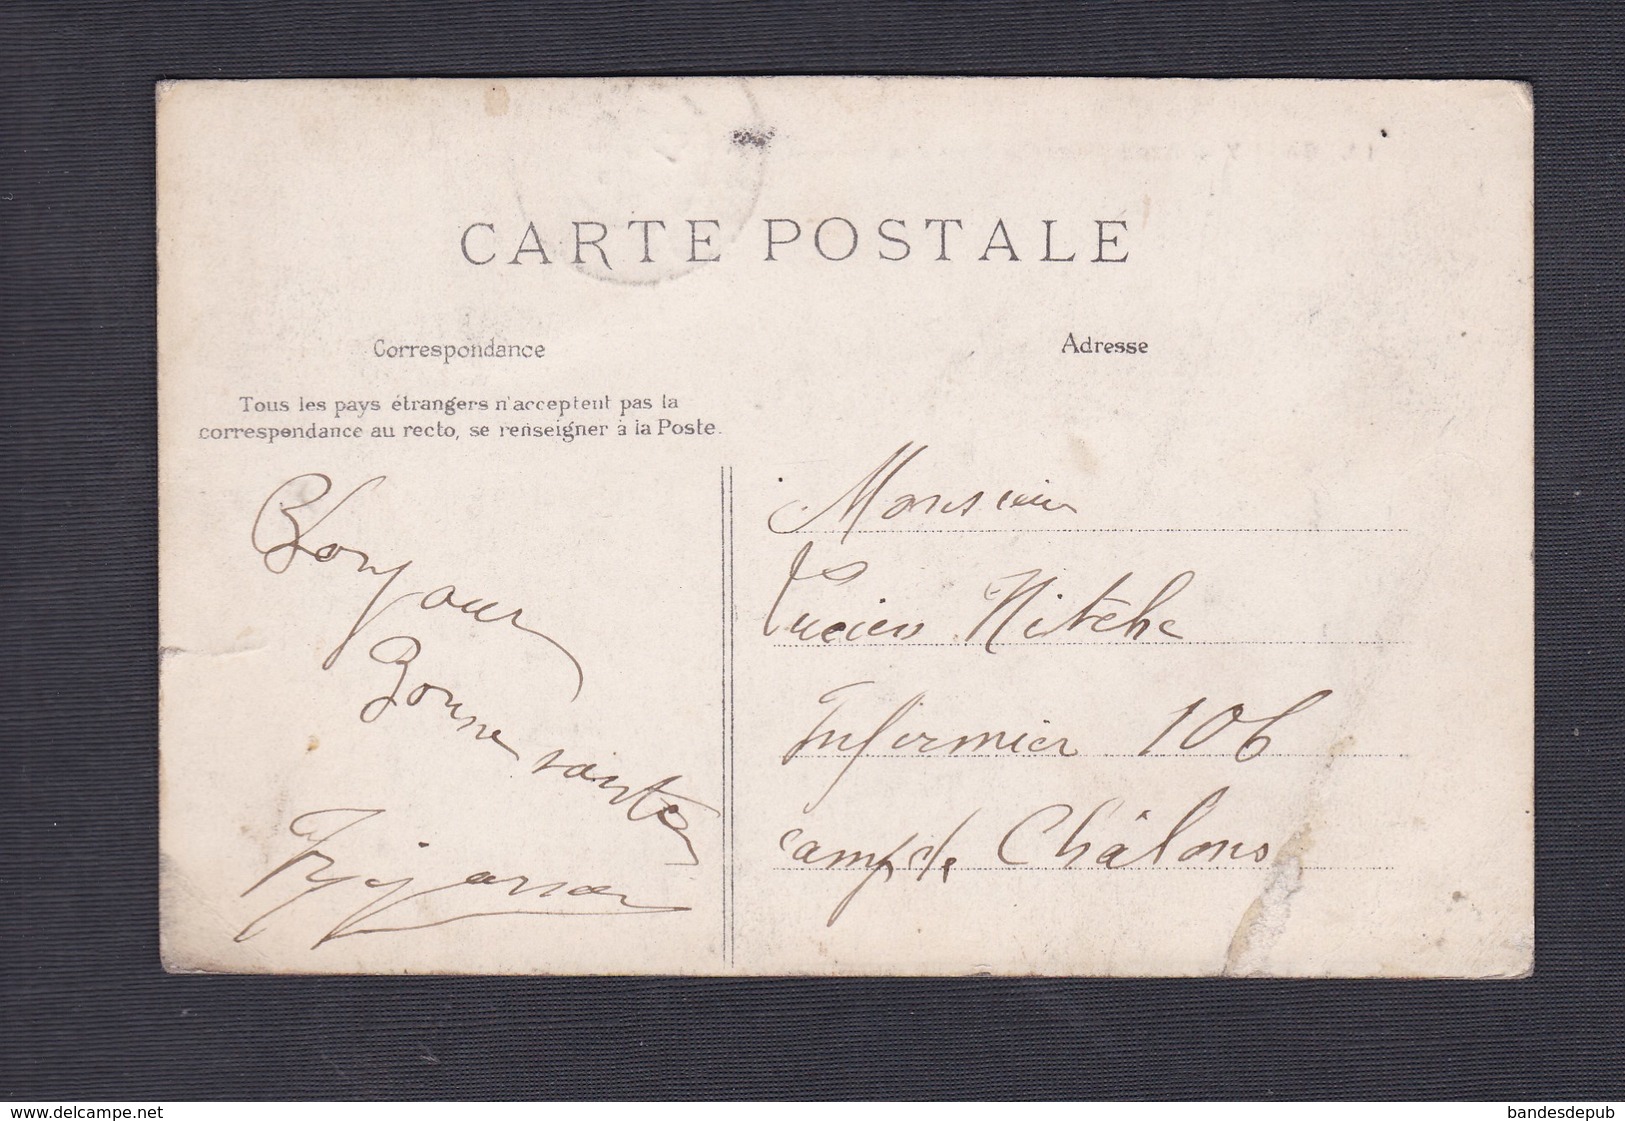 CARTE POSTALE
Correspondance
Tous les pays étrangers n'acceptent pas la
correspondance au recto, se renseigner à la Poste.
Bonjour
Bonne santé
Adresse
Monsieur
Lucien Nitche
Infirmier 106
camp de Châlons
www.delcampe.net
bandesdepub